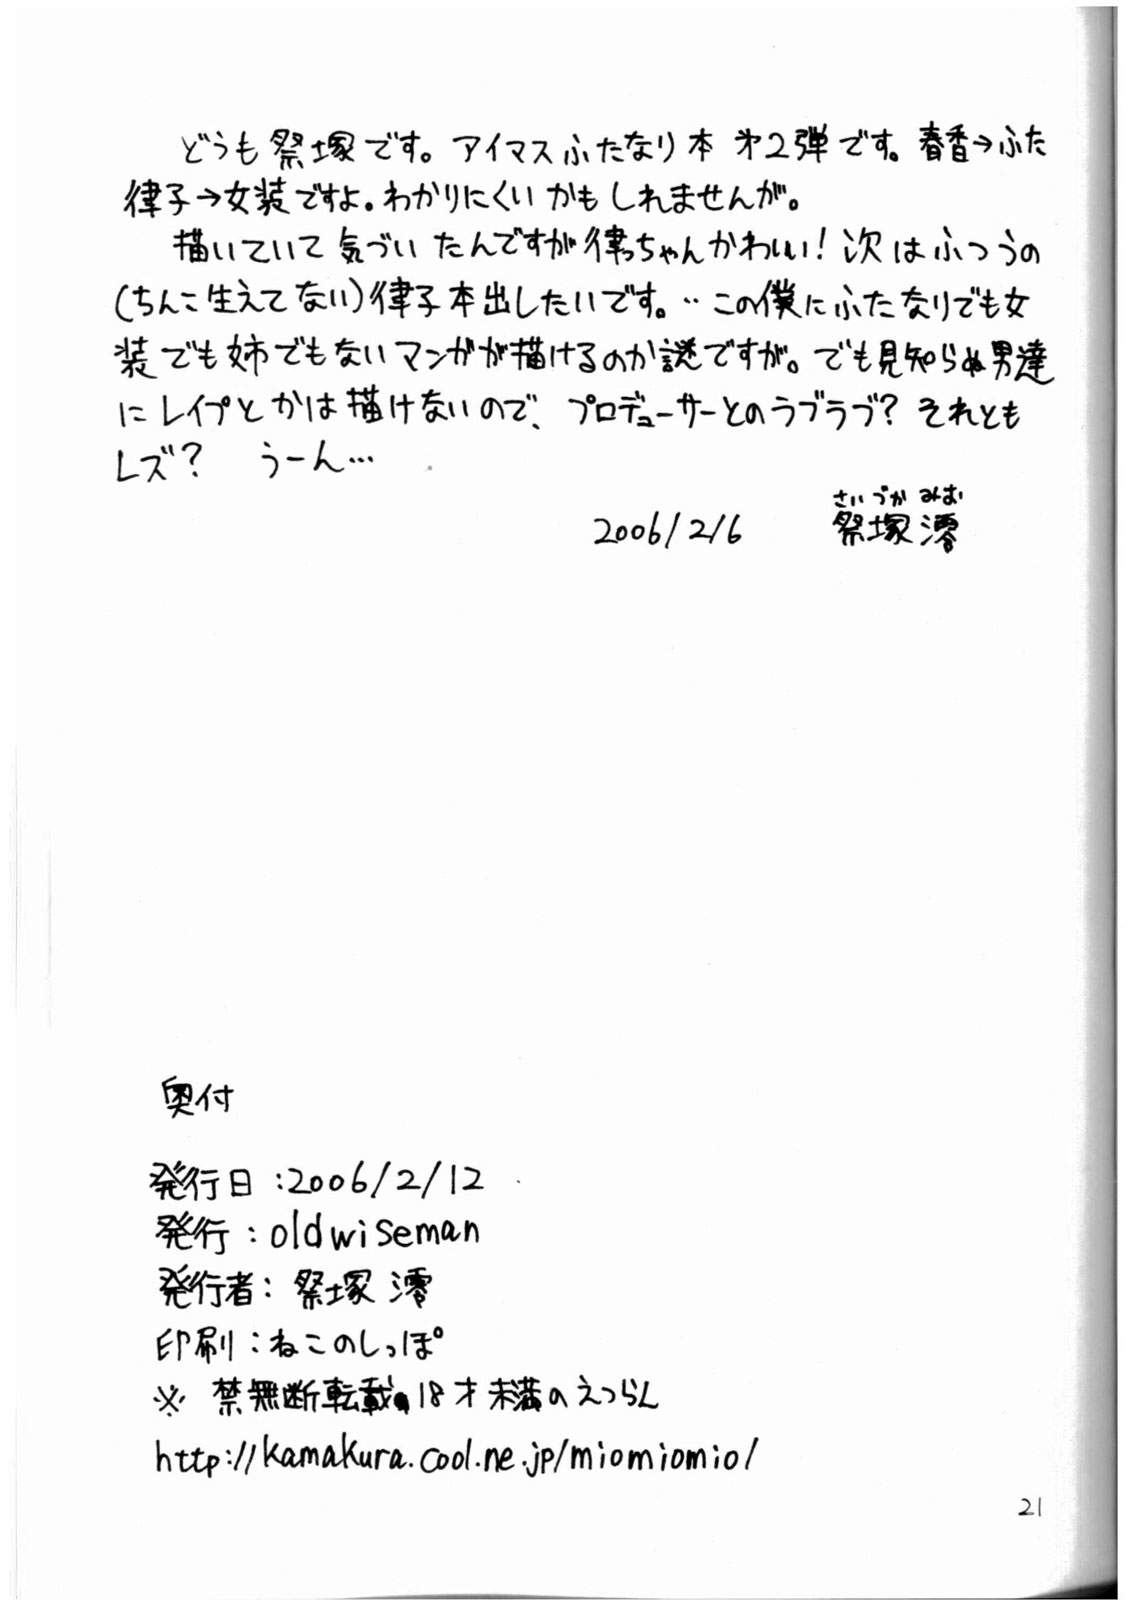 どうも祭塚です。アイマスふたなり本 才2弾です。春香→ふた
律子→女装ですよ。わかりにくいかもしれませんが。
描いていて気づいたんですが律っちゃんかわいい！次はふつうの
(ちんこ生えてない)律子本出したいです。…この僕にふたなりでも女
装でも姉でもないマンガが描けるのか謎ですが。でも見知らぬ男達
にレイプとかは描けないので、プロデューサーとのラブラブ？それとも
レズ？ うーん…
さいづか みお
2006/2/6 祭塚 澪
奥付
発行日：2006/2/12
発行：oldwiseman
発行者：祭塚 澪
印刷：ねこのしっぽ
※ 禁無断転載、18才未満のえつらん
http://kamakura.cool.ne.jp/miomiomio/
21